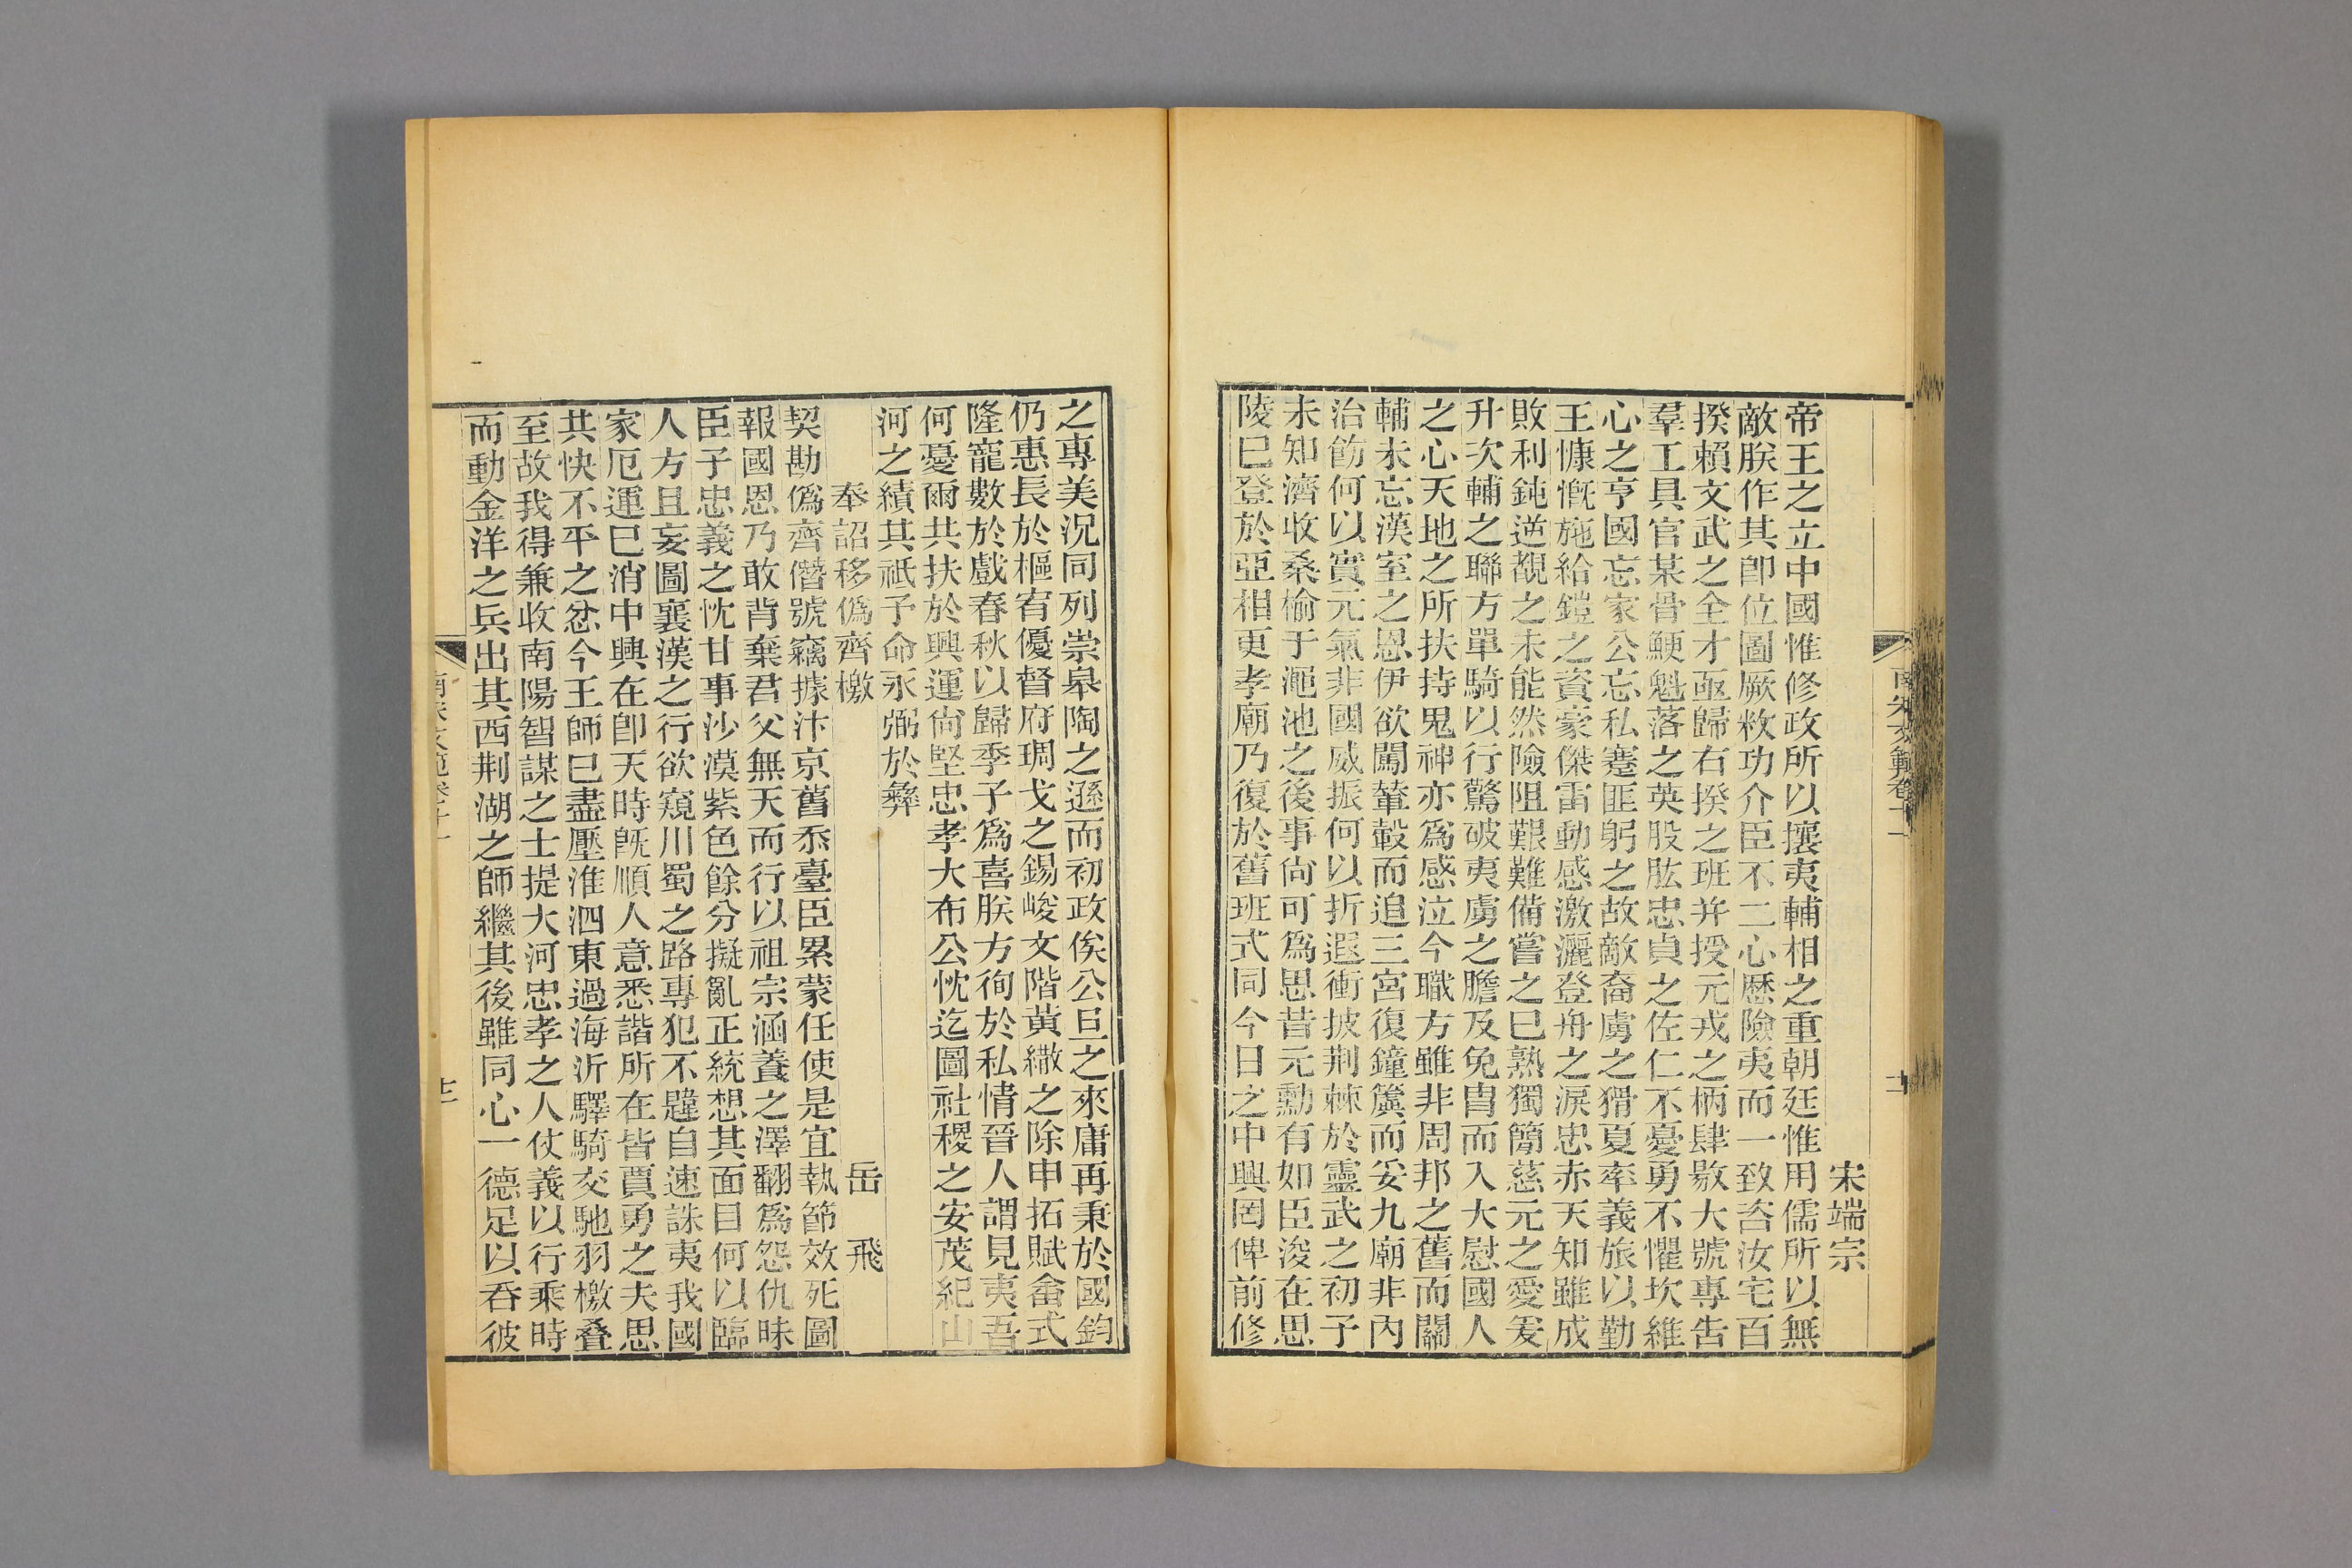 宋端宗
帝王之立中國惟修政所以攘夷輔相之重朝廷惟用儒所以無
敵朕作其卽位圖厥敉功介臣不二心歷險夷而一致咨汝宅百
揆賴文武之全才亟歸右揆之班并授元戎之柄肆敭大號專告
羣工具官某骨鯁魁落之英股肱忠貞之佐仁不憂勇不懼坎維
心之亨國忘家公忘私蹇匪躬之故敵裔虜之猾夏牽義旅以勤
王慷慨施給鎧之資豪傑雷動感激灑登舟之淚忠赤天知雖成
敗利鈍逆覩之未能然險阻艱難備嘗之已熟獨簡慈元之愛爰
升次輔之聯方單騎以行驚破夷虜之膽及免胄而入大慰國人
之心天地之所扶持鬼神亦爲感泣今職方雖非周邦之舊而關
輔未忘漢室之恩伊欲闢輦轂而追三宮復鐘簴而妥九廟非內
治飭何以實元氣非國威振何以折遐衝披荆棘於靈武之初予
未知濟收桑榆于澠池之後事尙可爲思昔元勳有如臣浚在思
陵已登於亞相更孝廟乃復於舊班式同今日之中興罔俾前修
之專美況同列崇皋陶之遜而初政俟公旦之來庸再秉於國鈞
仍惠長於樞宥優督府琱戈之錫峻文階黃繖之除申拓賦畬式
隆寵數於戲春秋以歸季子爲喜朕方徇於私情晉人謂見夷吾
何憂爾共扶於興運尙堅忠孝大布公忱迄圖社稷之安茂紀山
河之績其祇予命永弼於彝
奉詔移僞齊檄　岳飛
契勘僞齊僭號竊據汴京舊忝臺臣累蒙任使是宜執節效死圖
報國恩乃敢背棄君父無天而行以祖宗涵養之澤翻爲怨仇昧
臣子忠義之忱甘事沙漠紫色餘分擬亂正統想其面目何以臨
人方且妄圖襄漢之行欲窺川蜀之路專犯不韙自速誅夷我國
家厄運已消中興在卽天時旣順人意悉諧所在皆賈勇之夫思
共快不平之忿今王師已盡壓淮泗東過海沂驛騎交馳羽檄叠
至故我得兼收南陽智謀之士提大河忠孝之人仗義以行乘時
而動金洋之兵出其西荆湖之師繼其後雖同心一德足以吞彼